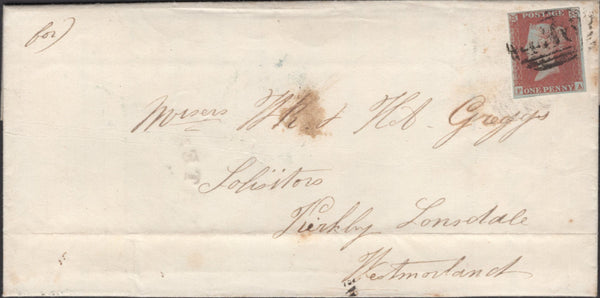 for)
POSTAGE
ONE PENNY
Messrs W. & H. Gregg
Solisitors
Kirkby Lonsdale
Westmorland